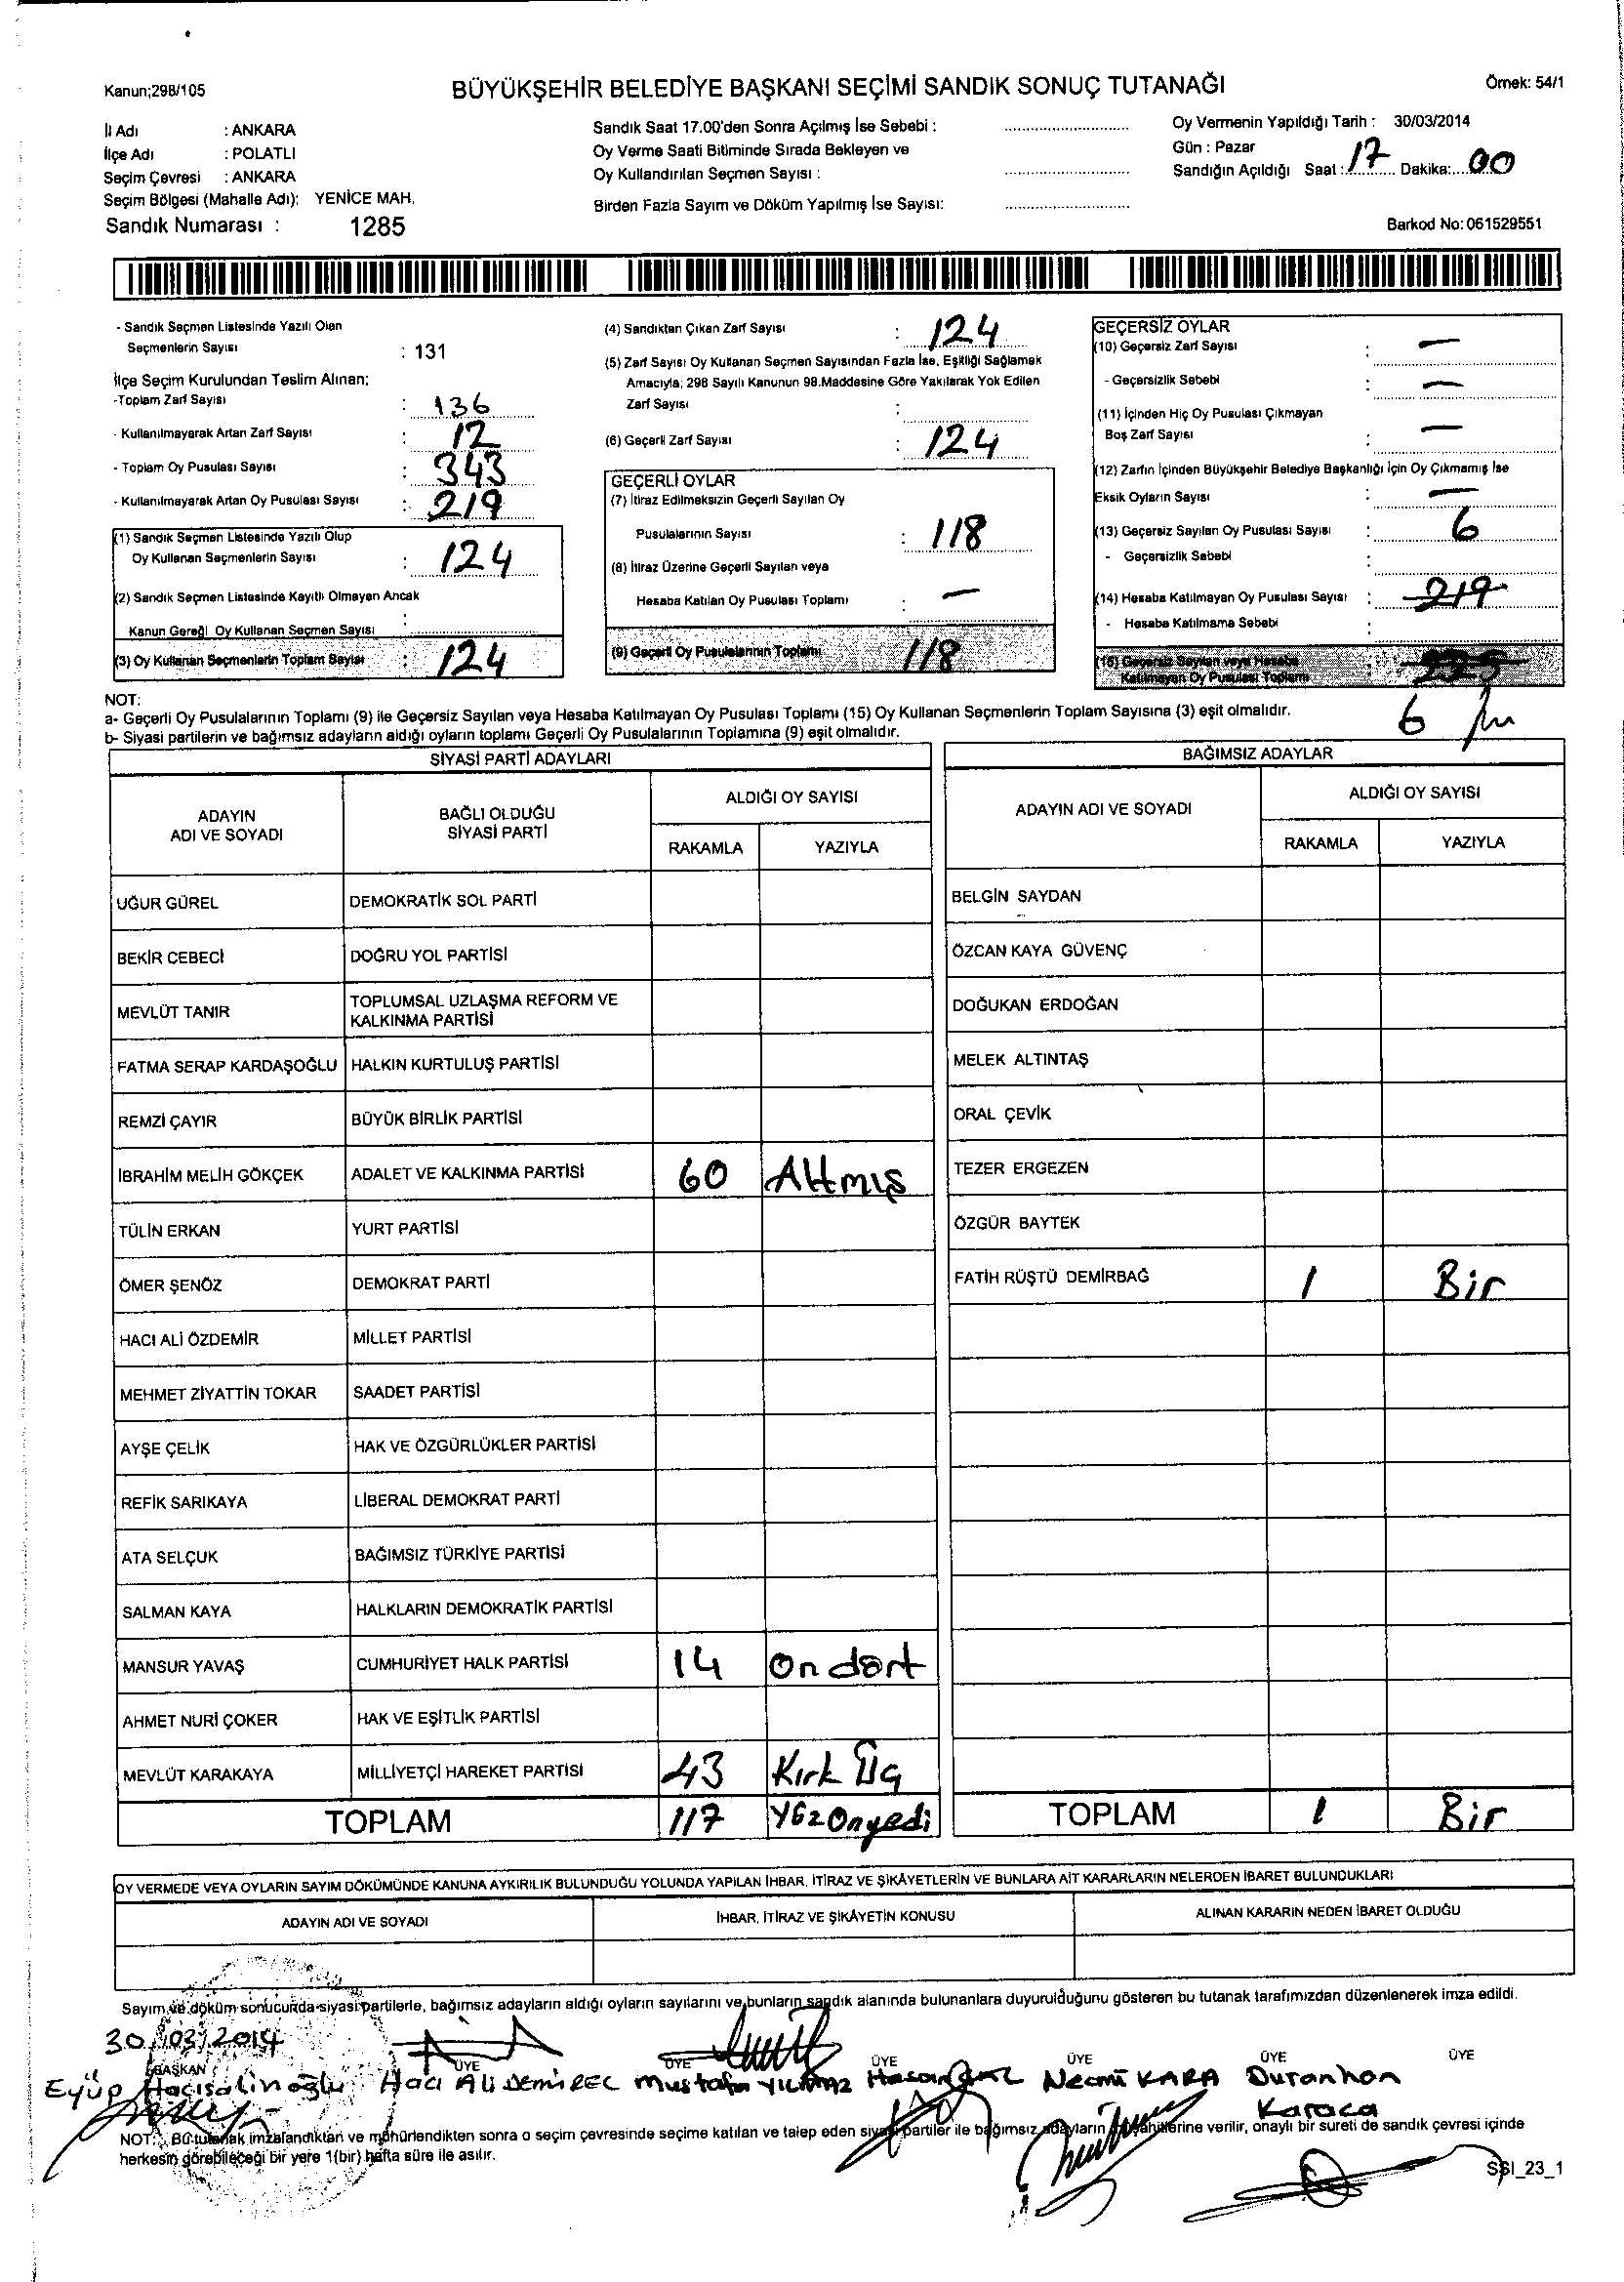 Kanun;298/105
BÜYÜKŞEHİR BELEDİYE BAŞKANI SEÇİMİ SANDIK SONUÇ TUTANAĞI
Örnek: 54/1
İl Adı : ANKARA
İlçe Adı : POLATLI
Seçim Çevresi : ANKARA
Seçim Bölgesi (Mahalle Adı): YENİCE MAH.
Sandık Numarası : 1285
Sandık Saat 17.00'den Sonra Açılmış İse Sebebi :
Oy Verme Saati Bitiminde Sırada Bekleyen ve
Oy Kullandırılan Seçmen Sayısı :
Birden Fazla Sayım ve Döküm Yapılmış İse Sayısı:
Oy Vermenin Yapıldığı Tarih : 30/03/2014
Gün : Pazar
Sandığın Açıldığı Saat : 17 Dakika: 00
Barkod No: 061529551
- Sandık Seçmen Listesinde Yazılı Olan
Seçmenlerin Sayısı : 131
İlçe Seçim Kurulundan Teslim Alınan;
-Toplam Zarf Sayısı : 136
- Kullanılmayarak Artan Zarf Sayısı : 12
- Toplam Oy Pusulası Sayısı : 343
- Kullanılmayarak Artan Oy Pusulası Sayısı : 219
(1) Sandık Seçmen Listesinde Yazılı Olup
Oy Kullanan Seçmenlerin Sayısı : 124
(2) Sandık Seçmen Listesinde Kayıtlı Olmayan Ancak
Kanun Gereği Oy Kullanan Seçmen Sayısı :
(3) Oy Kullanan Seçmenlerin Toplam Sayısı : 124
(4) Sandıktan Çıkan Zarf Sayısı : 124
(5) Zarf Sayısı Oy Kullanan Seçmen Sayısından Fazla İse, Eşitliği Sağlamak
Amacıyla; 298 Sayılı Kanunun 98.Maddesine Göre Yakılarak Yok Edilen
Zarf Sayısı :
(6) Geçerli Zarf Sayısı : 124
GEÇERLİ OYLAR
(7) İtiraz Edilmeksizin Geçerli Sayılan Oy
Pusulalarının Sayısı : 118
(8) İtiraz Üzerine Geçerli Sayılan veya
Hesaba Katılan Oy Pusulası Toplamı : —
(9) Geçerli Oy Pusulalarının Toplamı : 118
GEÇERSİZ OYLAR
(10) Geçersiz Zarf Sayısı : —
- Geçersizlik Sebebi : —
(11) İçinden Hiç Oy Pusulası Çıkmayan
Boş Zarf Sayısı : —
(12) Zarfın İçinden Büyükşehir Belediye Başkanlığı İçin Oy Çıkmamış İse
Eksik Oyların Sayısı : —
(13) Geçersiz Sayılan Oy Pusulası Sayısı : 6
- Geçersizlik Sebebi :
(14) Hesaba Katılmayan Oy Pusulası Sayısı : 219
- Hesaba Katılmama Sebebi :
(15) Geçersiz Sayılan veya Hesaba
Katılmayan Oy Pusulası Toplamı : 225
6
NOT:
a- Geçerli Oy Pusulalarının Toplamı (9) ile Geçersiz Sayılan veya Hesaba Katılmayan Oy Pusulası Toplamı (15) Oy Kullanan Seçmenlerin Toplam Sayısına (3) eşit olmalıdır.
b- Siyasi partilerin ve bağımsız adayların aldığı oyların toplamı Geçerli Oy Pusulalarının Toplamına (9) eşit olmalıdır.
SİYASİ PARTİ ADAYLARI
ADAYIN ADI VE SOYADI
BAĞLI OLDUĞU SİYASİ PARTİ
ALDIĞI OY SAYISI
RAKAMLA YAZIYLA
UĞUR GÜREL DEMOKRATİK SOL PARTİ
BEKİR CEBECİ DOĞRU YOL PARTİSİ
MEVLÜT TANIR TOPLUMSAL UZLAŞMA REFORM VE KALKINMA PARTİSİ
FATMA SERAP KARDAŞOĞLU HALKIN KURTULUŞ PARTİSİ
REMZİ ÇAYIR BÜYÜK BİRLİK PARTİSİ
İBRAHİM MELİH GÖKÇEK ADALET VE KALKINMA PARTİSİ 60 Altmış
TÜLİN ERKAN YURT PARTİSİ
ÖMER ŞENÖZ DEMOKRAT PARTİ
HACI ALİ ÖZDEMİR MİLLET PARTİSİ
MEHMET ZİYATTİN TOKAR SAADET PARTİSİ
AYŞE ÇELİK HAK VE ÖZGÜRLÜKLER PARTİSİ
REFİK SARIKAYA LİBERAL DEMOKRAT PARTİ
ATA SELÇUK BAĞIMSIZ TÜRKİYE PARTİSİ
SALMAN KAYA HALKLARIN DEMOKRATİK PARTİSİ
MANSUR YAVAŞ CUMHURİYET HALK PARTİSİ 14 On dört
AHMET NURİ ÇOKER HAK VE EŞİTLİK PARTİSİ
MEVLÜT KARAKAYA MİLLİYETÇİ HAREKET PARTİSİ 43 Kırk Üç
TOPLAM 117 YüzOnyedi
BAĞIMSIZ ADAYLAR
ADAYIN ADI VE SOYADI
ALDIĞI OY SAYISI
RAKAMLA YAZIYLA
BELGİN SAYDAN
ÖZCAN KAYA GÜVENÇ
DOĞUKAN ERDOĞAN
MELEK ALTINTAŞ
ORAL ÇEVİK
TEZER ERGEZEN
ÖZGÜR BAYTEK
FATİH RÜŞTÜ DEMİRBAĞ 1 Bir
TOPLAM 1 Bir
OY VERMEDE VEYA OYLARIN SAYIM DÖKÜMÜNDE KANUNA AYKIRILIK BULUNDUĞU YOLUNDA YAPILAN İHBAR, İTİRAZ VE ŞİKÂYETLERİN VE BUNLARA AİT KARARLARIN NELERDEN İBARET BULUNDUKLARI
ADAYIN ADI VE SOYADI İHBAR, İTİRAZ VE ŞİKÂYETİN KONUSU ALINAN KARARIN NEDEN İBARET OLDUĞU
Sayım ve döküm sonucunda siyasi partilerle, bağımsız adayların aldığı oyların sayılarını ve bunların sandık alanında bulunanlara duyurulduğunu gösteren bu tutanak tarafımızdan düzenlenerek imza edildi.
30/03/2014
BAŞKAN ÜYE ÜYE ÜYE ÜYE ÜYE ÜYE
Eyüp Hacısalihoğlu Hacı Ali DEMİREL Mustafa YILMAZ Hasan Necmi KARA Duranhan
Karaca
NOT: Bu tutanak imzalandıktan ve mühürlendikten sonra o seçim çevresinde seçime katılan ve talep eden siyasi partiler ile bağımsız adayların müşahitlerine verilir, onaylı bir sureti de sandık çevresi içinde
herkesin görebileceği bir yere 1(bir) hafta süre ile asılır.
SSI_23_1